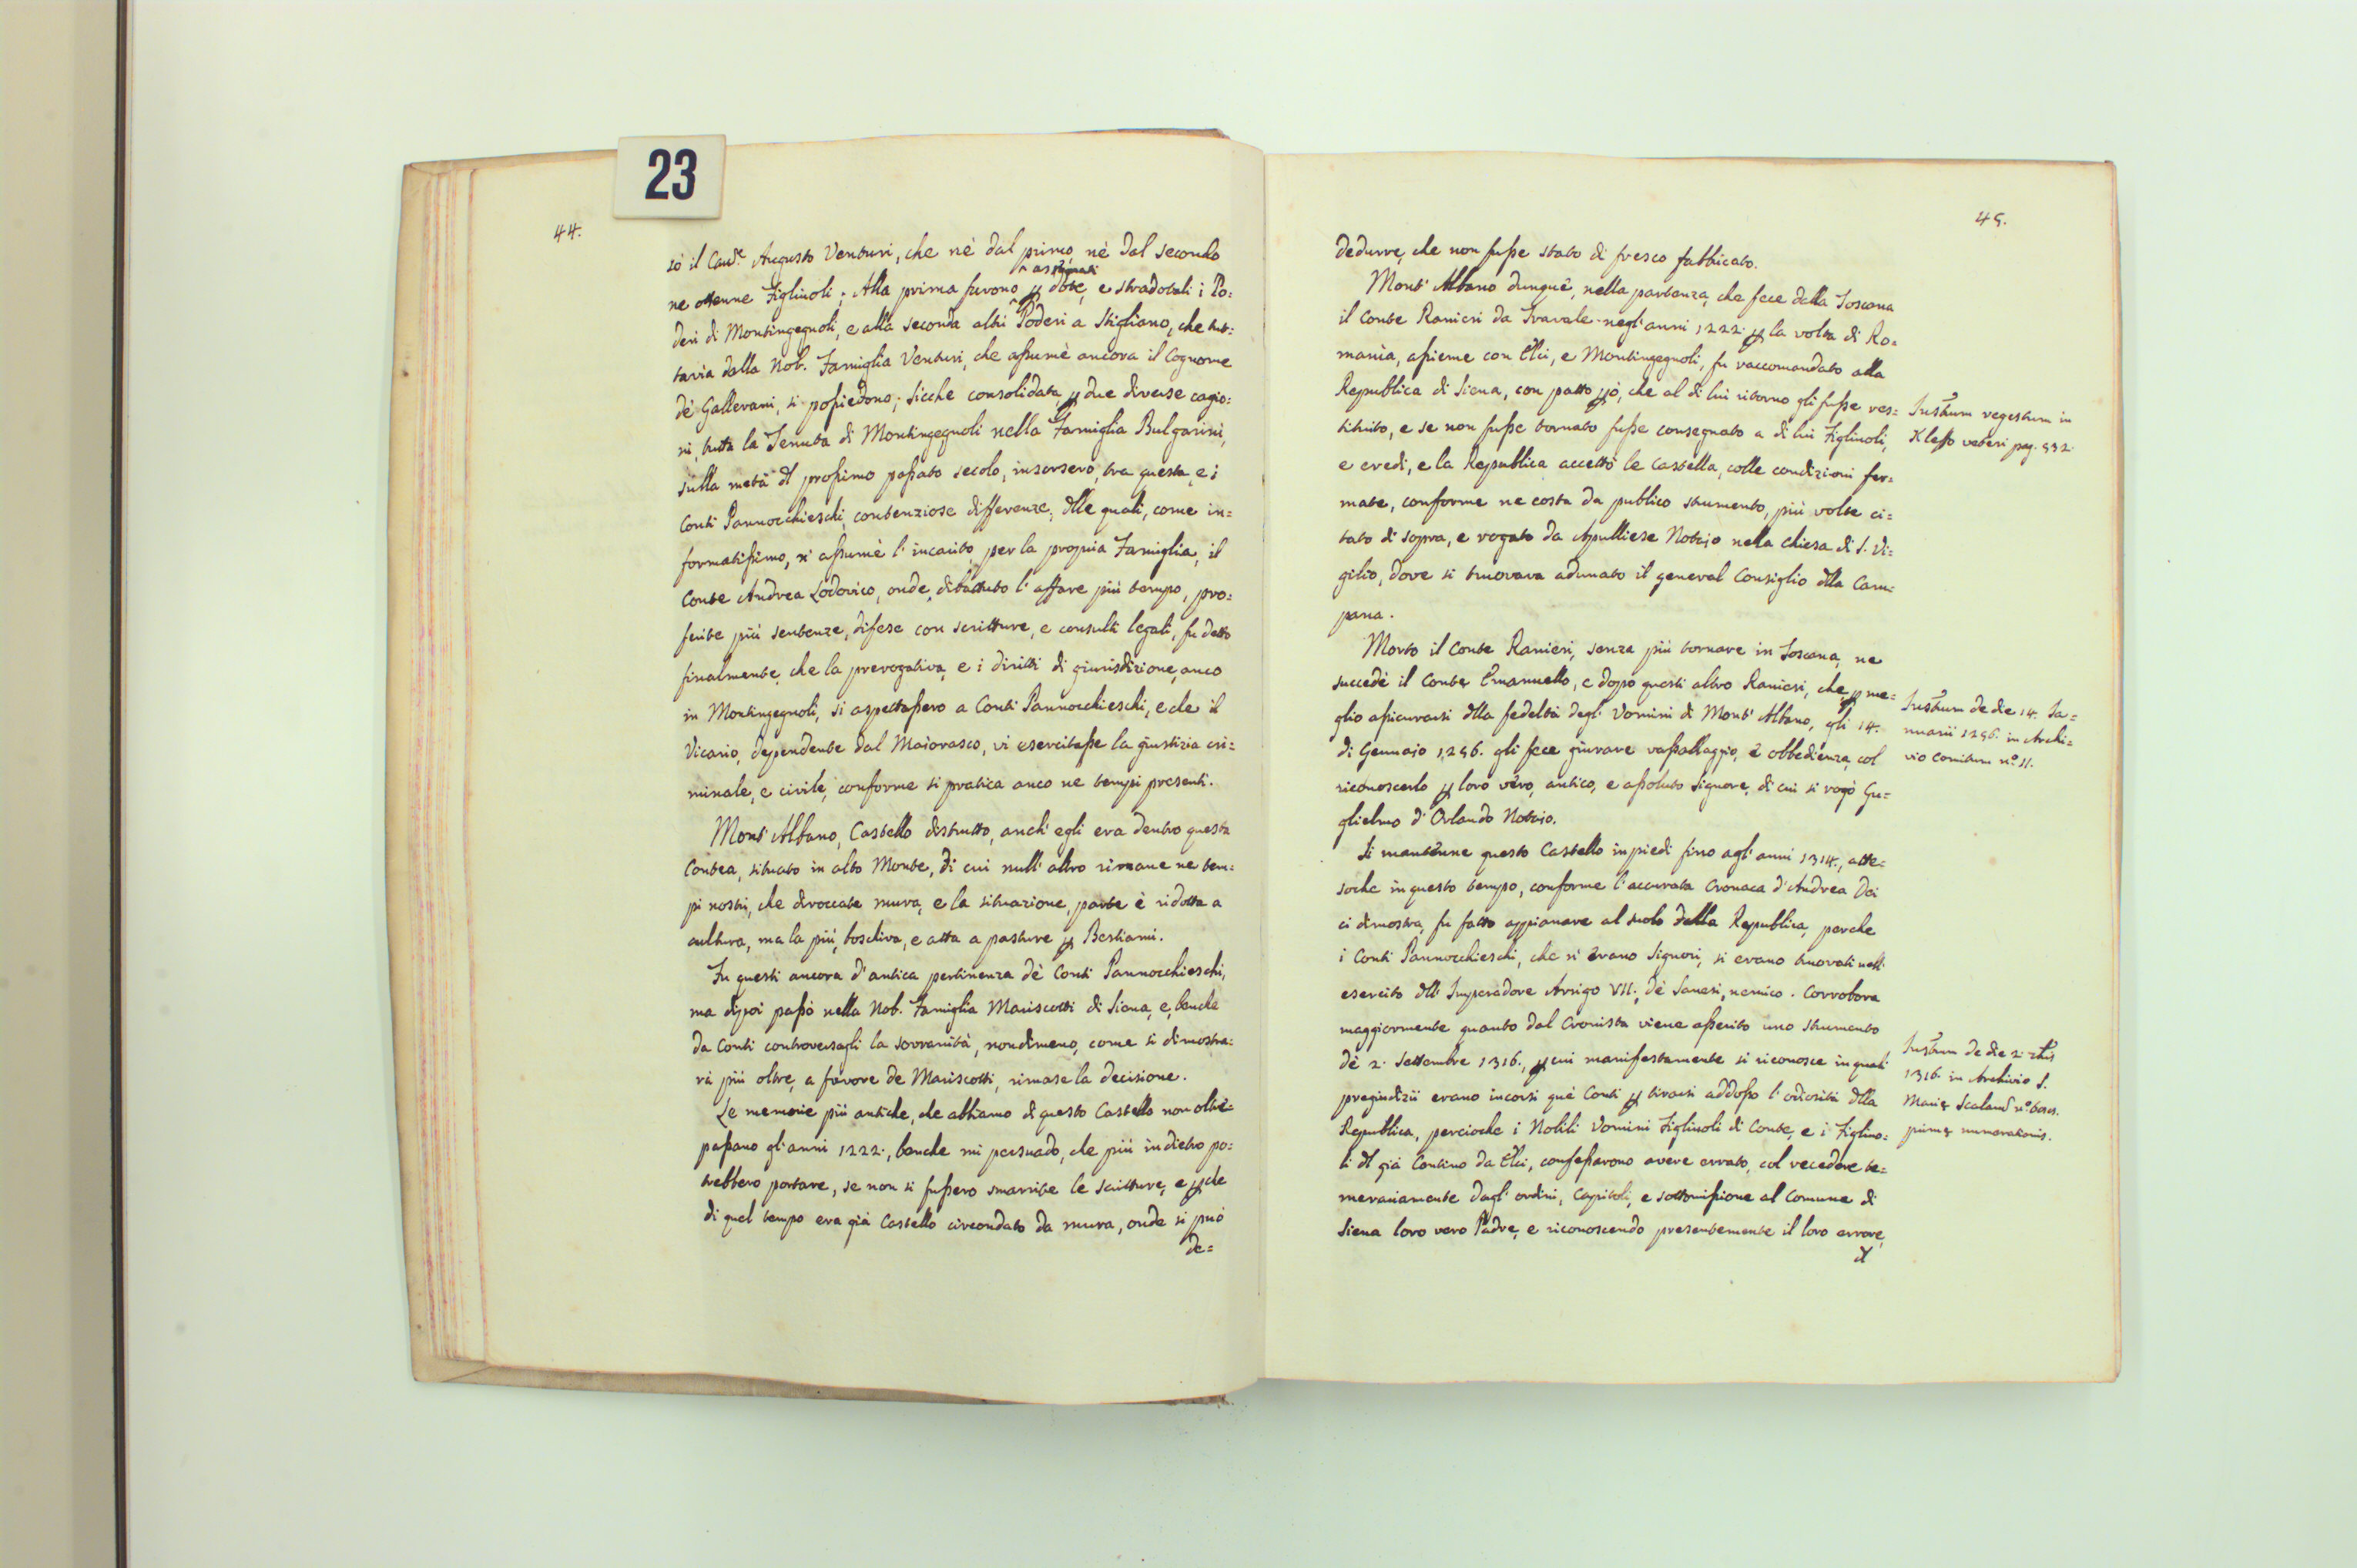 23
44.
sò il Cav.e Augusto Venturi, che nè dal primo, nè dal secondo
ne ottenne Figliuoli; Alla prima furono assegnati p dote, e stradotali i Po=
deri di Montingegnoli, e alla seconda altri Poderi a Stigliano, che tut=
tavia dalla Nob. Famiglia Venturi, che assumè ancora il Cognome
dè Gallerani, si possiedono; sicche consolidata p due diverse cagio=
ni, tutta la Tenuta di Montingegnoli nella Famiglia Bulgarini,
sulla metà dl prossimo passato secolo, insorsero, tra questa, e i
Conti Pannocchieschi, contenziose differenze, dlle quali, come in=
formatissimo, n' assumè l' incarito, per la propria Famiglia, il
Conte Andrea Lodovico, onde, dibattuto l' affare più tempo, pro=
ferite più sentenze, difese con scritture, e consulti legali, fu detto
finalmente, che la prerogativa, e i diritti di giurisdizione, anco
in Montingegnoli, si aspettassero a Conti Pannocchieschi, e che il
Vicario, dependente dal Maiorasco, vi esercitasse la giustizia cri=
minale, e civile, conforme si pratica anco ne tempi presenti.
Mont' Albano, Castello distrutto, anch' egli era dentro questa
Contea, situato in alto Monte, di cui null' altro rimane ne tem=
pi nostri, che diroccate mura, e la situazione, parte è ridotta a
cultura, ma la più, boschiva, e atta a pasture p Bestiami.
Fu questi ancora d' antica pertinenza dè Conti Pannocchieschi,
ma dipoi passò nella Nob. Famiglia Mariscotti di Siena, e, benche
da Conti controversagli la sovranità, nondimeno, come si dimostra=
rà più oltre, a favore de Mariscotti, rimase la decisione.
Le memorie più antiche, che abbiamo di questo Castello non oltre=
passano gl' anni 1222., benche mi persuado, che più indietro po=
trebbero portare, se non si fussero smarrite le scritture, e pche
di quel tempo era già Castello circondato da mura, onde si può
de=
45.
dedurre, che non fusse stato di fresco fabbricato.
Mont' Albano dunque, nella partenza, che fece dalla Toscana
il Conte Ranieri da Travale negl' anni 1222. p la volta di Ro=
manìa, assieme con Elci, e Montingegnoli, fu raccomandato alla
Republica di Siena, con patto pò, che al di lui ritorno gli fusse res=
tituito, e se non fusse tornato fusse consegnato a di lui Figliuoli,
e eredi, e la Republica accettò le Castella, colle condizioni fer=
mate, conforme ne costa da publico strumento, più volte ci=
tato di sopra, e rogato da Apulliese Notaio nella Chiesa di S. Vi=
gilio, dove si truovava adunato il general Consiglio dlla Cam=
pana.
Instrum registum in
Kleffo veteri pag. 532.
Morto il Conte Ranieri, senza più tornare in Toscana, ne
succedè il Conte Emanuello, e dopo questi altro Ranieri, che, p me=
glio assicurarsi dlla fedeltà degl' Uomini di Mont' Albano, gli 14.
di Gennaio 1256. gli fece giurare vassallaggio, e obbedienza, col
riconoscerlo p loro vero, antico, e assoluto Signore, di cui si rogò Gu=
glielmo d' Orlando Notaio.
Instrum de die 14. Ja=
nuarii 1256. in Archi=
vio Comitum n.o 11.
Si mantenne questo Castello in piedi fino agl' anni 1314., atte=
soche in questo tempo, conforme l' accurata Cronaca d' Andrea Dei
ci dimostra, fu fatto appianare al suolo dalla Republica, perche
i Conti Pannocchieschi, che n' erano Signori, si erano truovati nell'
esercito dll' Imperadore Arrigo VII., dè Sanesi, nemico. Corrobora
maggiormente quanto dal Cronista viene asserito uno strumento
dè 2. Settembre 1316., p cui manifestamente si riconosce in quali
pregiudizii erano incorsi què Conti p tirarsi addosso l' odiosità dlla
Republica, percioche i Nobili Uomini Figliuoli di Conte, e i Figliuo=
li dl già Contino da Elci, confessarono avere errato, col recedere te=
merariamente dagl' ordini, Capitoli, e sottomissione al Comune di
Siena loro vero Padre, e riconoscendo presentemente il loro errore,
Instrum de die 2. 7bris
1316. in Archivio S.
Marię Scalarum n.o
primę numerationis.